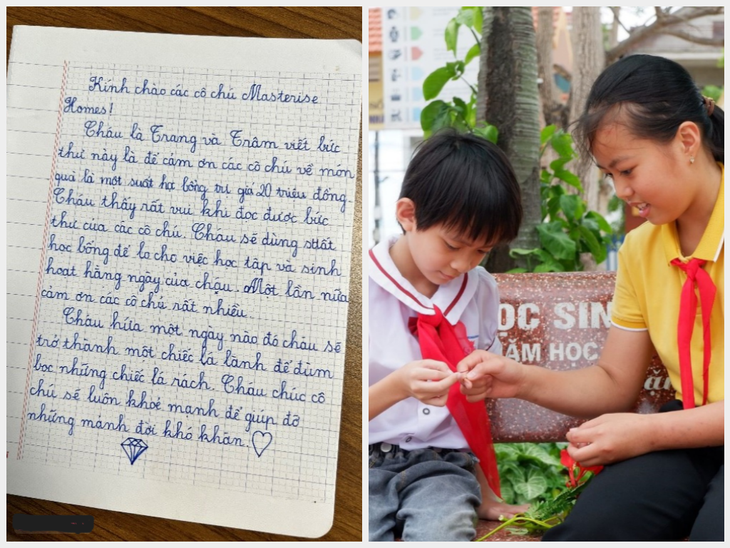 Kính chào các cô chú Masterise
Homes!
Cháu là Trang và Trâm viết bức
thư này là để cảm ơn các cô chú về món
quà là một suất hạ bổng trị giá 20 triệu đồng.
Cháu thấy rất vui khi đọc được bức
thư của các cô chú. Cháu sẽ dùng suất
học bổng để lo cho việc học tập và sinh
hoạt hàng ngày của cháu. Một lần nữa
cảm ơn các cô chú rất nhiều.
Cháu hứa một ngày nào đó cháu sẽ
trở thành một chiếc lá lành để đùm
bọc những chiếc lá rách. Cháu chúc cô
chú sẽ luôn khoẻ mạnh để giúp đỡ
những mảnh đời khó khăn.
ỌC SIN
NĂM HỌC